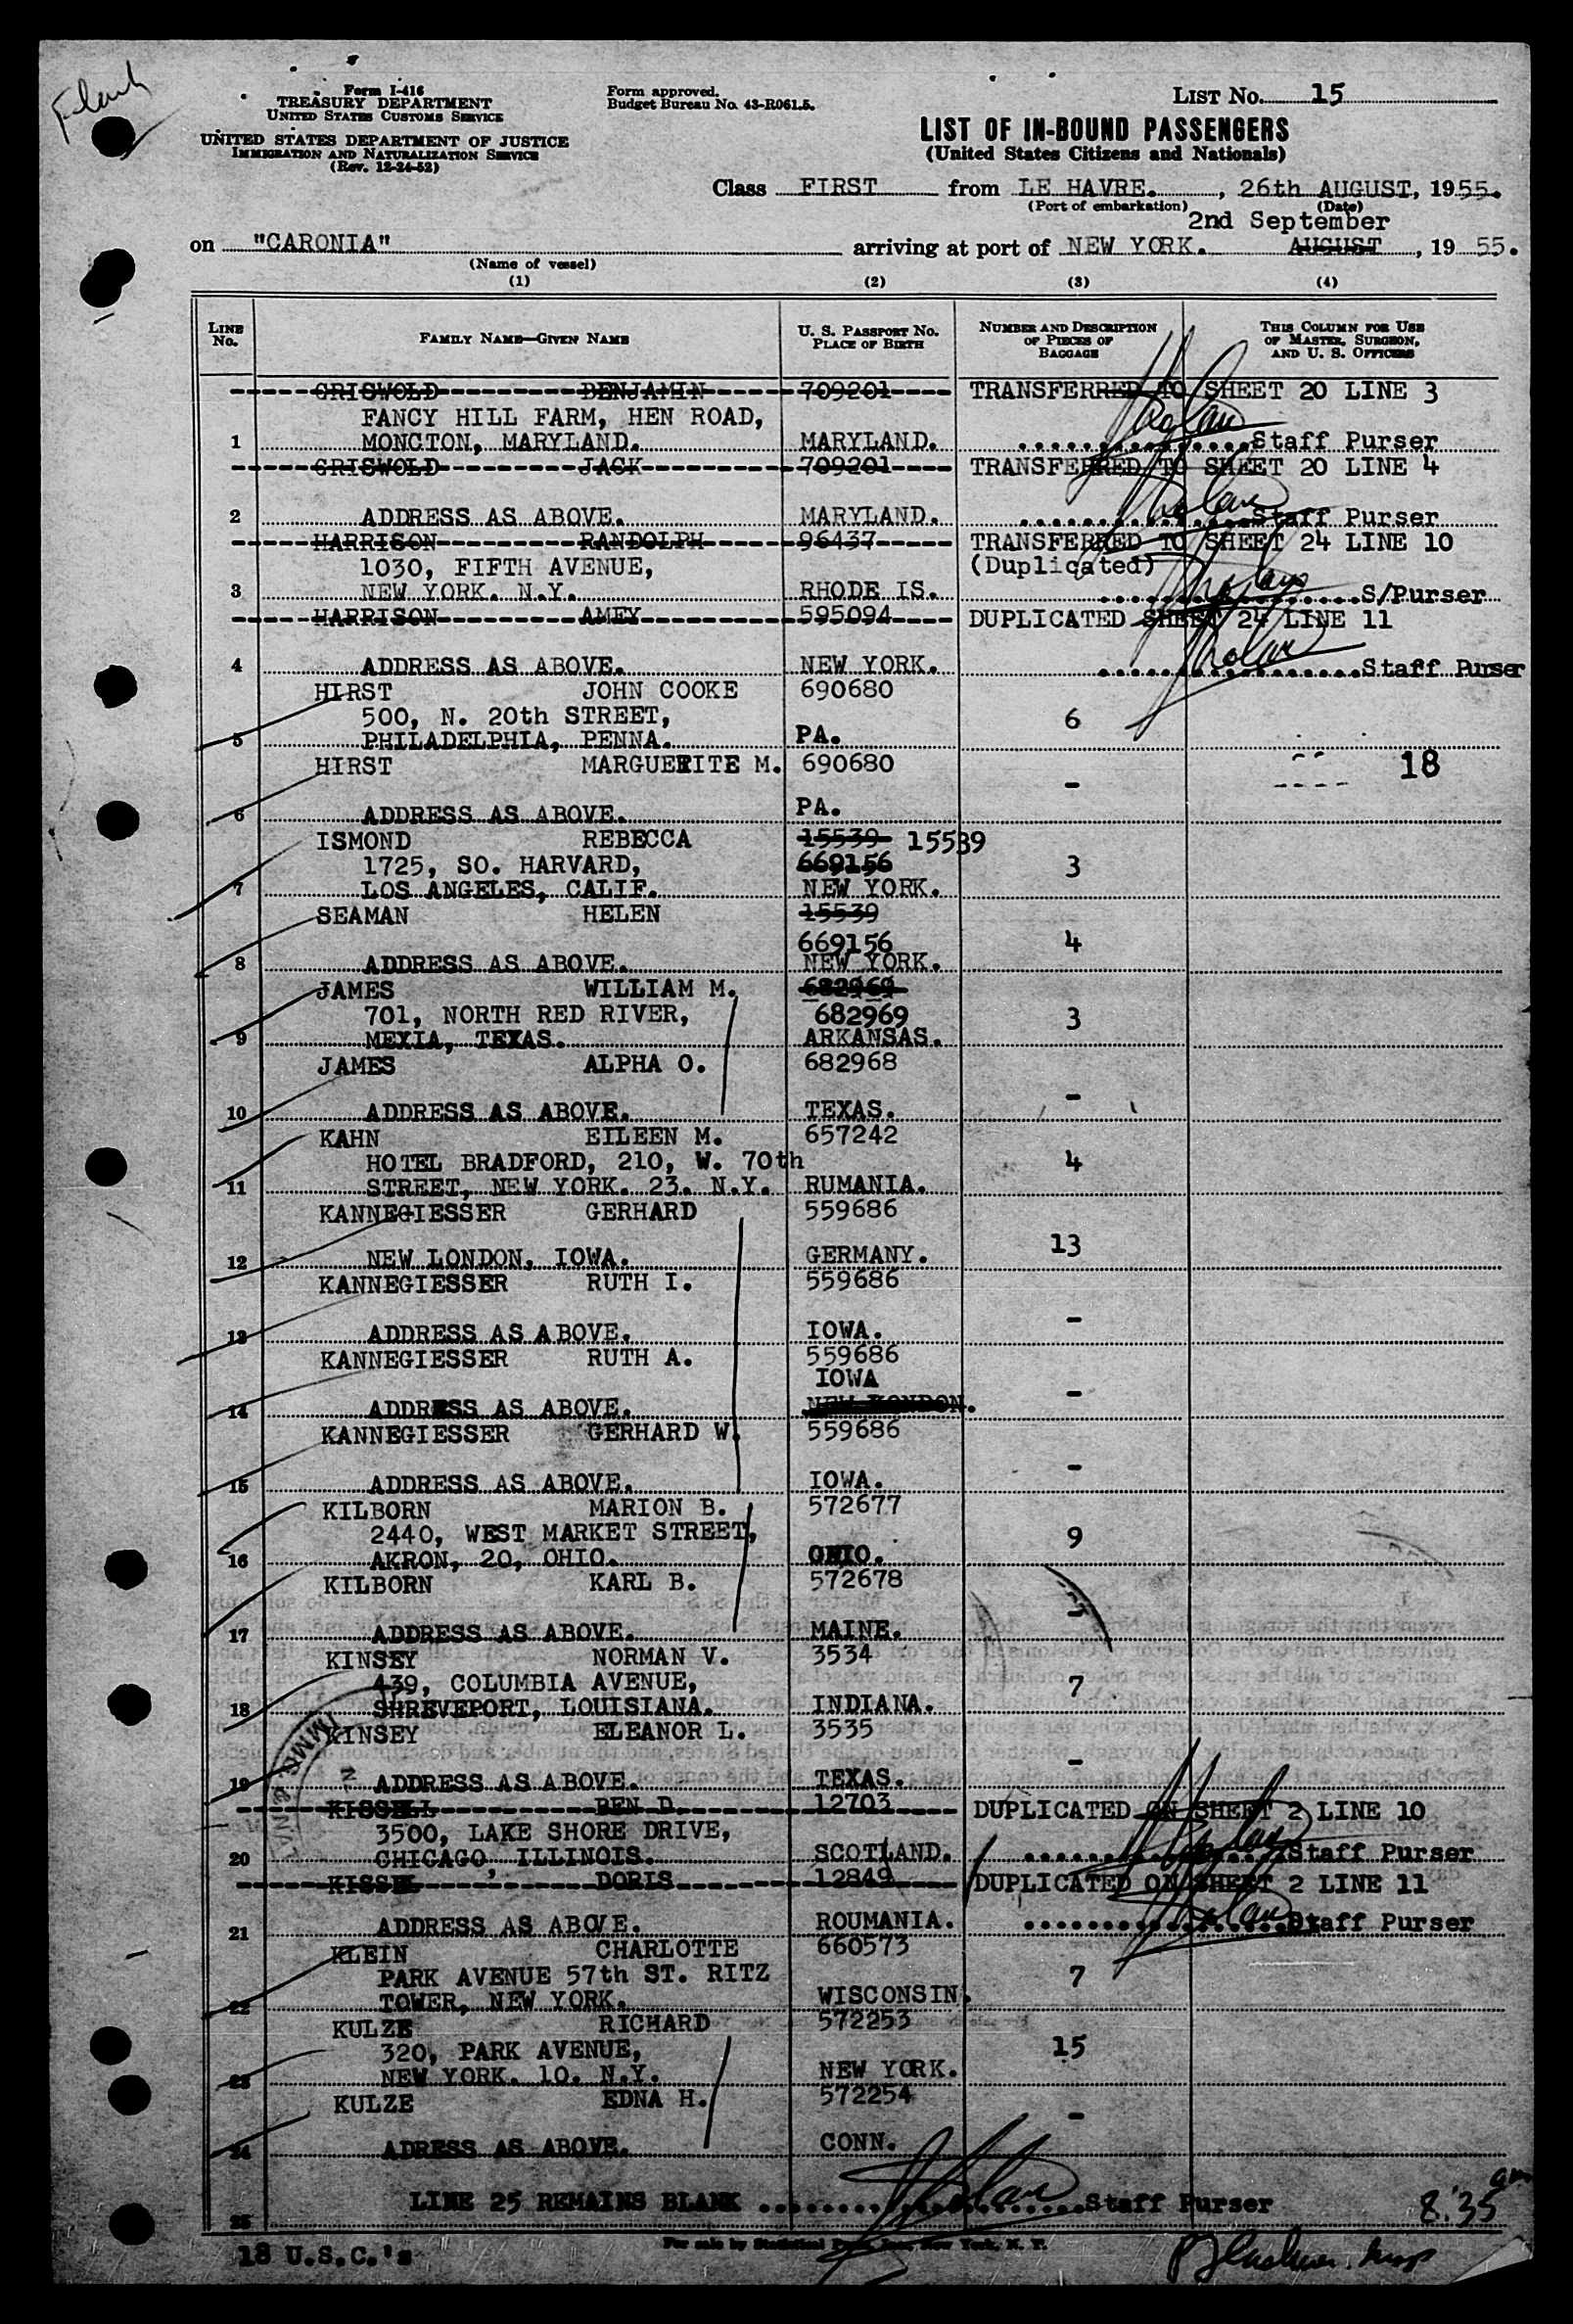 Form I-416
TREASURY DEPARTMENT
UNITED STATES CUSTOMS SERVICE
UNITED STATES DEPARTMENT OF JUSTICE
IMMIGRATION AND NATURALIZATION SERVICE
(Rev. 12-24-52)
Form approved.
Budget Bureau No. 43-R061.5.
LIST No. 15
LIST OF IN-BOUND PASSENGERS
(United States Citizens and Nationals)
Class FIRST from LE HAVRE., 26th AUGUST, 1955.
(Port of embarkation) (Date)
2nd September
on "CARONIA" arriving at port of NEW YORK. AUGUST, 19 55.
(Name of vessel)
(1) (2) (3) (4)
LINE No. FAMILY NAME—GIVEN NAME U. S. PASSPORT NO. PLACE OF BIRTH NUMBER AND DESCRIPTION OF PIECES OF BAGGAGE THIS COLUMN FOR USE OF MASTER, SURGEON, AND U. S. OFFICERS
GRISWOLD BENJAMIN 709201 TRANSFERRED TO SHEET 20 LINE 3
FANCY HILL FARM, HEN ROAD,
1 MONCTON, MARYLAND. MARYLAND. Staff Purser
GRISWOLD JACK 709201 TRANSFERRED TO SHEET 20 LINE 4
2 ADDRESS AS ABOVE. MARYLAND. Staff Purser
HARRISON RANDOLPH 96437 TRANSFERRED TO SHEET 24 LINE 10
1030, FIFTH AVENUE, (Duplicated)
3 NEW YORK. N.Y. RHODE IS. S/Purser
HARRISON AMEY 595094 DUPLICATED SHEET 24 LINE 11
4 ADDRESS AS ABOVE. NEW YORK. Staff Purser
HIRST JOHN COOKE 690680
500, N. 20th STREET, 6
5 PHILADELPHIA, PENNA. PA.
HIRST MARGUERITE M. 690680 - 18
6 ADDRESS AS ABOVE. PA.
ISMOND REBECCA 15539 15539
1725, SO. HARVARD, 669156 3
7 LOS ANGELES, CALIF. NEW YORK.
SEAMAN HELEN 15539
669156 4
8 ADDRESS AS ABOVE. NEW YORK.
JAMES WILLIAM M. 682969
701, NORTH RED RIVER, 682969 3
9 MEXIA, TEXAS. ARKANSAS.
JAMES ALPHA O. 682968
10 ADDRESS AS ABOVE. TEXAS. -
KAHN EILEEN M. 657242
HOTEL BRADFORD, 210, W. 70th 4
11 STREET, NEW YORK. 23. N.Y. RUMANIA.
KANNEGIESSER GERHARD 559686
12 NEW LONDON, IOWA. GERMANY. 13
KANNEGIESSER RUTH I. 559686
13 ADDRESS AS ABOVE. IOWA. -
KANNEGIESSER RUTH A. 559686
IOWA
14 ADDRESS AS ABOVE. NEW LONDON. -
KANNEGIESSER GERHARD W. 559686
15 ADDRESS AS ABOVE. IOWA. -
KILBORN MARION B. 572677
2440, WEST MARKET STREET, 9
16 AKRON, 20, OHIO. OHIO.
KILBORN KARL B. 572678
17 ADDRESS AS ABOVE. MAINE. -
KINSEY NORMAN V. 3534
439, COLUMBIA AVENUE, 7
18 SHREVEPORT, LOUISIANA. INDIANA.
KINSEY ELEANOR L. 3535
19 ADDRESS AS ABOVE. TEXAS. -
KISSELL BEN D. 12703 DUPLICATED ON SHEET 2 LINE 10
3500, LAKE SHORE DRIVE,
20 CHICAGO, ILLINOIS. SCOTLAND. Staff Purser
KISSEL DORIS 12849 DUPLICATED ON SHEET 2 LINE 11
21 ADDRESS AS ABOVE. ROUMANIA. Staff Purser
KLEIN CHARLOTTE 660573
PARK AVENUE 57th ST. RITZ 7
22 TOWER, NEW YORK. WISCONSIN.
KULZE RICHARD 572253
320, PARK AVENUE, 15
23 NEW YORK. 10. N.Y. NEW YORK.
KULZE EDNA H. 572254 -
24 ADRESS AS ABOVE. CONN.
LINE 25 REMAINS BLANK Staff Purser
25 8:35 am
18 U.S.C.'s